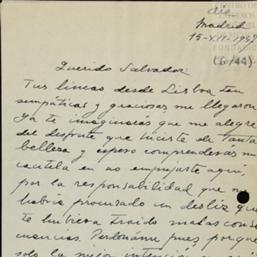 Madrid
15-XII-1948
(6/44)
Querido Salvador:
Tus lineas desde Lisboa tan
simpáticas y graciosas me llegaron
Ya te imaginarás que me alegre
del disfrute que hiciste de tanta
belleza y espero comprenderás mi
cautela en no empujarte aquí,
por la responsabilidad que me
habría procurado un desliz que
te hubiera traido malas conse
cuencias. Perdoname pues porque
solo la mejor